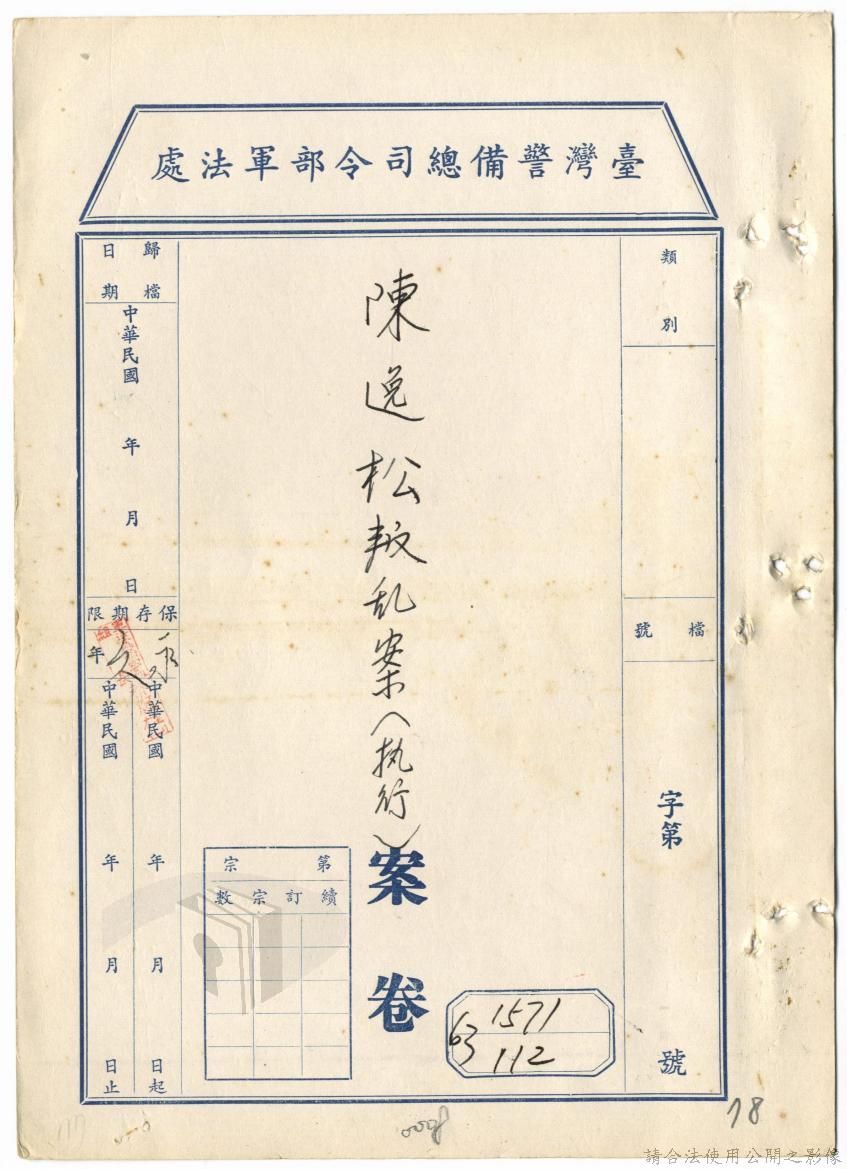 臺灣警備總司令部軍法處
類別
檔號
字第
號
陳逸松叛乱案(执行)
案卷
第宗
續訂宗數
1571
63
112
歸檔日期
中華民國
年
月
日
保存期限
永久年
中華民國年月日起
中華民國年月日止
78
請合法使用公開之影像